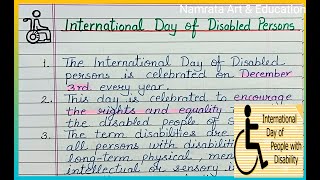 Namrata Art & Education
International Day of Disabled Persons
1. The International Day of Disabled
persons is celebrated on December
3rd every year.
2. This day is celebrated to encourage
the rights and equality
the disabled people of
3. The term disabilities are
all persons with disabili
long-term physical, men
intellectual or sensory
International
Day of
People with
Disability